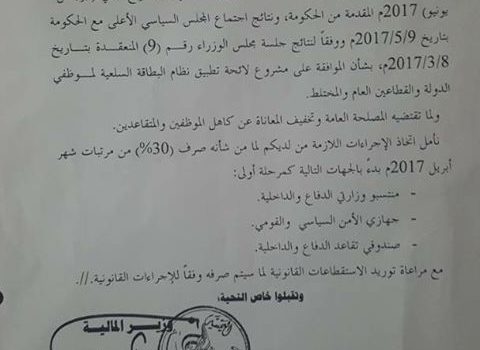 يونيو) 2017م المقدمة من الحكومة، ونتائج اجتماع المجلس السياسي الأعلى مع الحكومة
بتاريخ 2017/5/9م ووفقاً لنتائج جلسة مجلس الوزراء رقم (9) المنعقدة بتاريخ
2017/3/8م، بشأن الموافقة على مشروع لائحة تطبيق نظام البطاقة السلعية لموظفي
الدولة والقطاعين العام والمختلط.
ولما تقتضيه المصلحة العامة وتخفيف المعاناة عن كاهل الموظفين والمتقاعدين.
نأمل اتخاذ الإجراءات اللازمة من لديكم لما من شأنه صرف (30%) من مرتبات شهر
أبريل 2017م بدءً بالجهات التالية كمرحلة أولى:
- منتسبو وزارتي الدفاع والداخلية.
- جهازي الأمن السياسي والقومي.
- صندوقي تقاعد الدفاع والداخلية.
مع مراعاة توريد الاستقطاعات القانونية لما سيتم صرفه وفقاً للإجراءات القانونية.//.
وتقبلوا خالص التحية،
وزير المالية